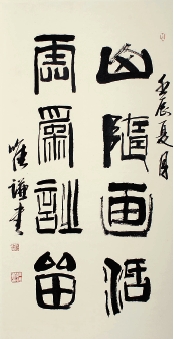 山隨画活
雲爲詩留
壬辰夏月
唯謙書